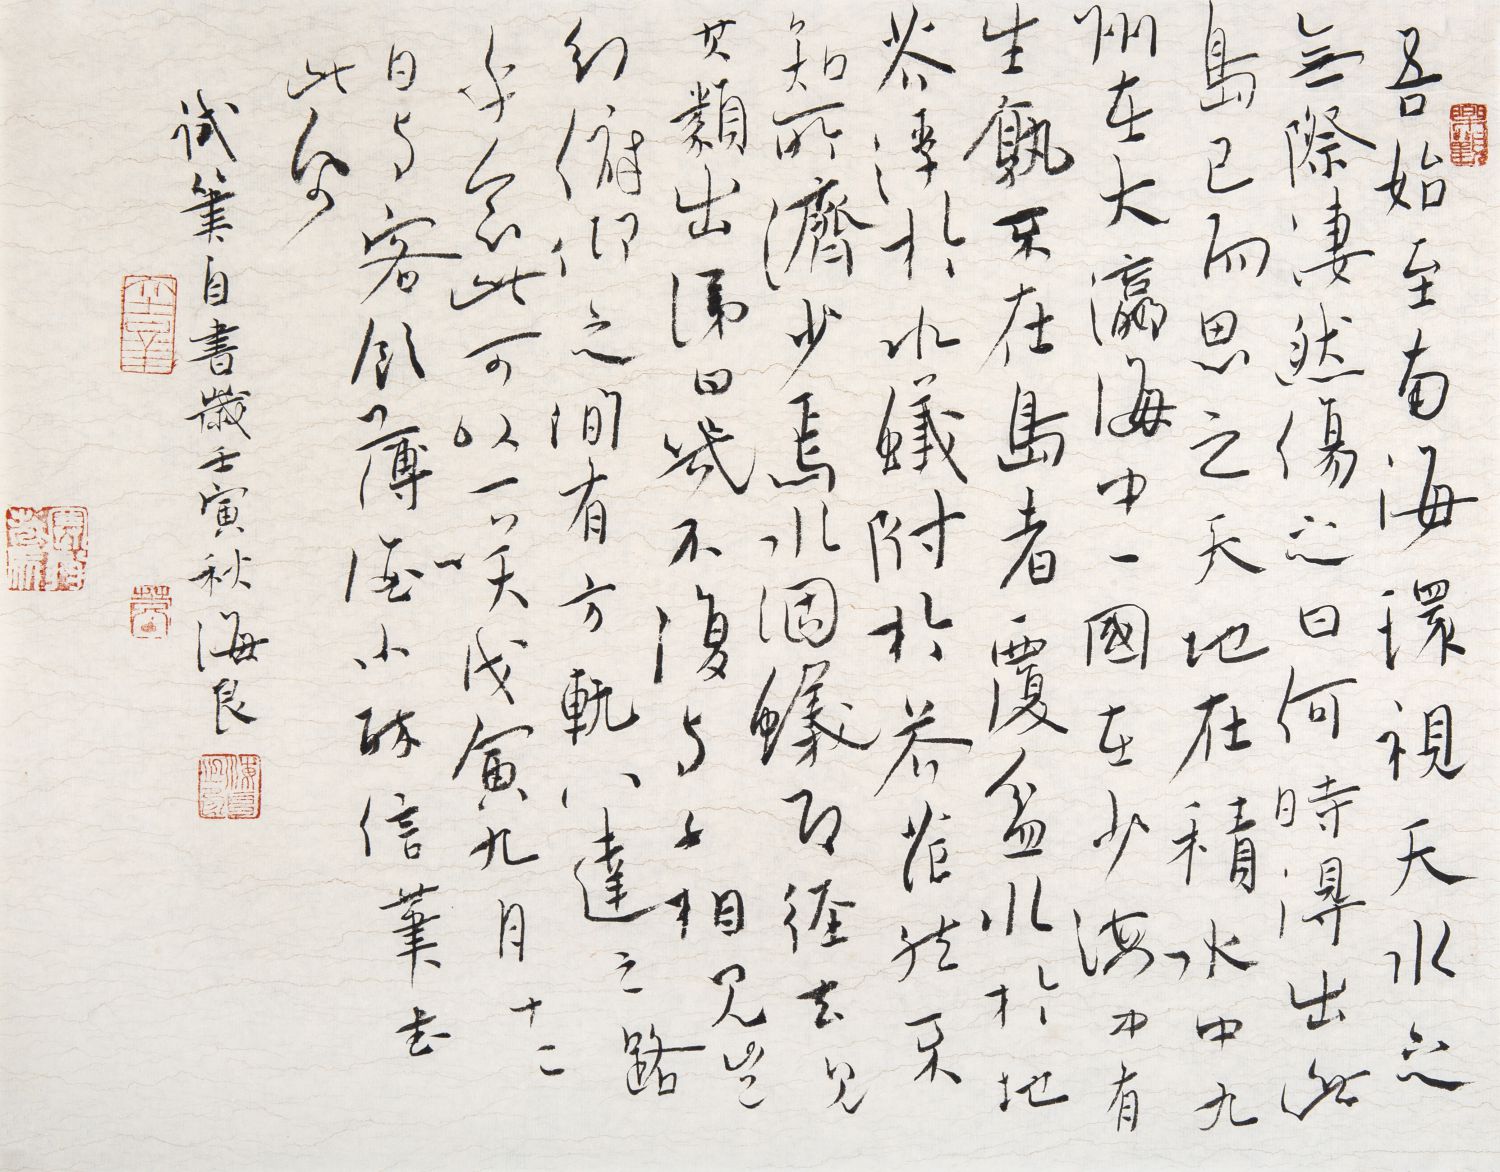 吾始至南海環視天水之
無際淒然傷之曰何時得出此
島已而思之天地在積水中九
州在大瀛海中々國在少海中有
生孰不在島者覆盆水於地
芥浮於水蟻附於芥茫然不
知所濟少焉水涸蟻即徑去見
其類出涕曰幾不復與子相見豈
知俯仰之間有方軌八達之路
乎念此可以一咲戊寅九月十二
日與客飲薄酒小醉信筆書
此紙
試筆自書歲壬寅秋海良